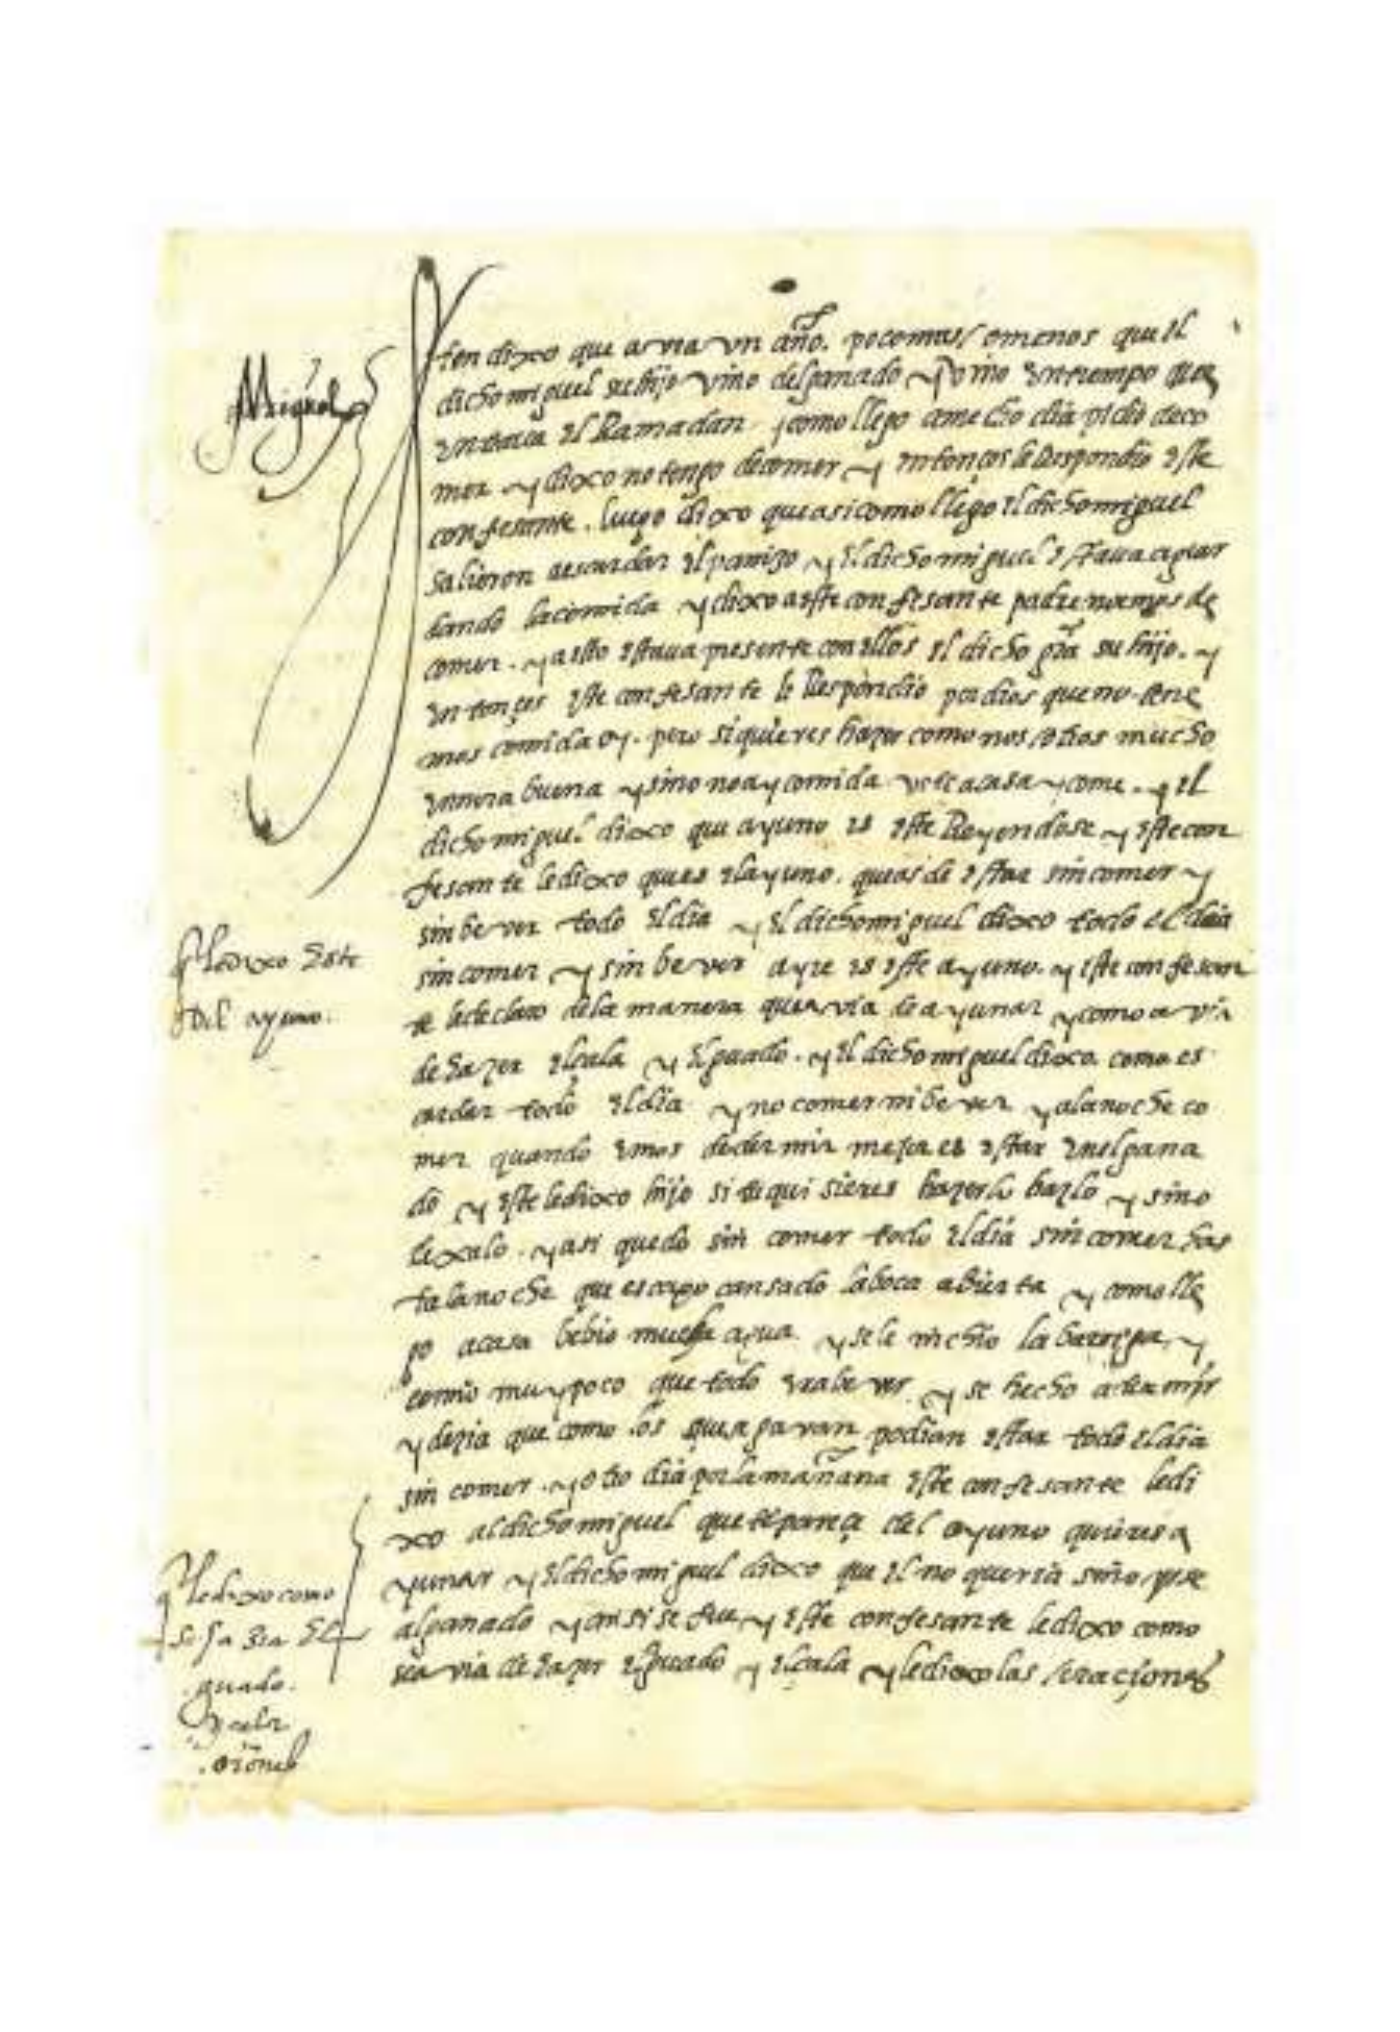 Miguel
Iten dixo que avia un año. poco mas / o menos que el
dicho miguel su hijo vino del ganado y vino en tiempo que
entrava el Ramadan y como llego a medio dia pidio de co
mer y dixo no tengo de comer y entonçes le Respondio este
confesante. luego dixo que asi como llego el dicho miguel
salieron a escardar el panizo y el dicho miguel estava aguar
dando la comida y dixo a este confesante padre vamos de
comer. y a esto estava presente con ellos el dicho su hijo. y
entonçes este confesante le Respondio por dios que no tene
mos comida oy. pero si quieres hazer como nosotros mucho
enora buena y sino no ay comida vete a casa y come. y el
dicho miguel dixo que ayuno es este Reyendose y este con
fesante le dixo ques el ayuno. que as de estar sin comer y
sin bever todo el dia y el dicho miguel dixo todo el dia
sin comer y sin bever ayre es este ayuno. y este confesan
te le declaro de la manera que avia de ayunar y como avia
de hazer el çala y el guado. y el dicho miguel dixo como es
ardar todo el dia y no comer ni bever y a la noche co
mer quando emos de dormir mejor es estar en el gana
do y este le dixo hijo si tu quisieres hazerlo hazlo y sino
dexalo. y asi quedo sin comer todo el dia sin comer has
ta la noche que escapo cansado la boca abierta y como lle
go a casa bebio mucha agua y se le incho la barriga y
comio muy poco que todo era bever y se hecho a dormir
y dezia que como los que segavan podian estar todo el dia
sin comer. y otro dia por la mañana este confesante le di
xo al dicho miguel que te pareçe del ayuno quieres a
yunar y el dicho miguel dixo que el no queria sino yrse
al ganado y ansi se fue y este confesante le dixo como
se avia de hazer el guado y el çala y le dixo las oraciones
q le dixo este
del ayuno.
q le dixo como
se hazia el
guado.
y çala
oriones